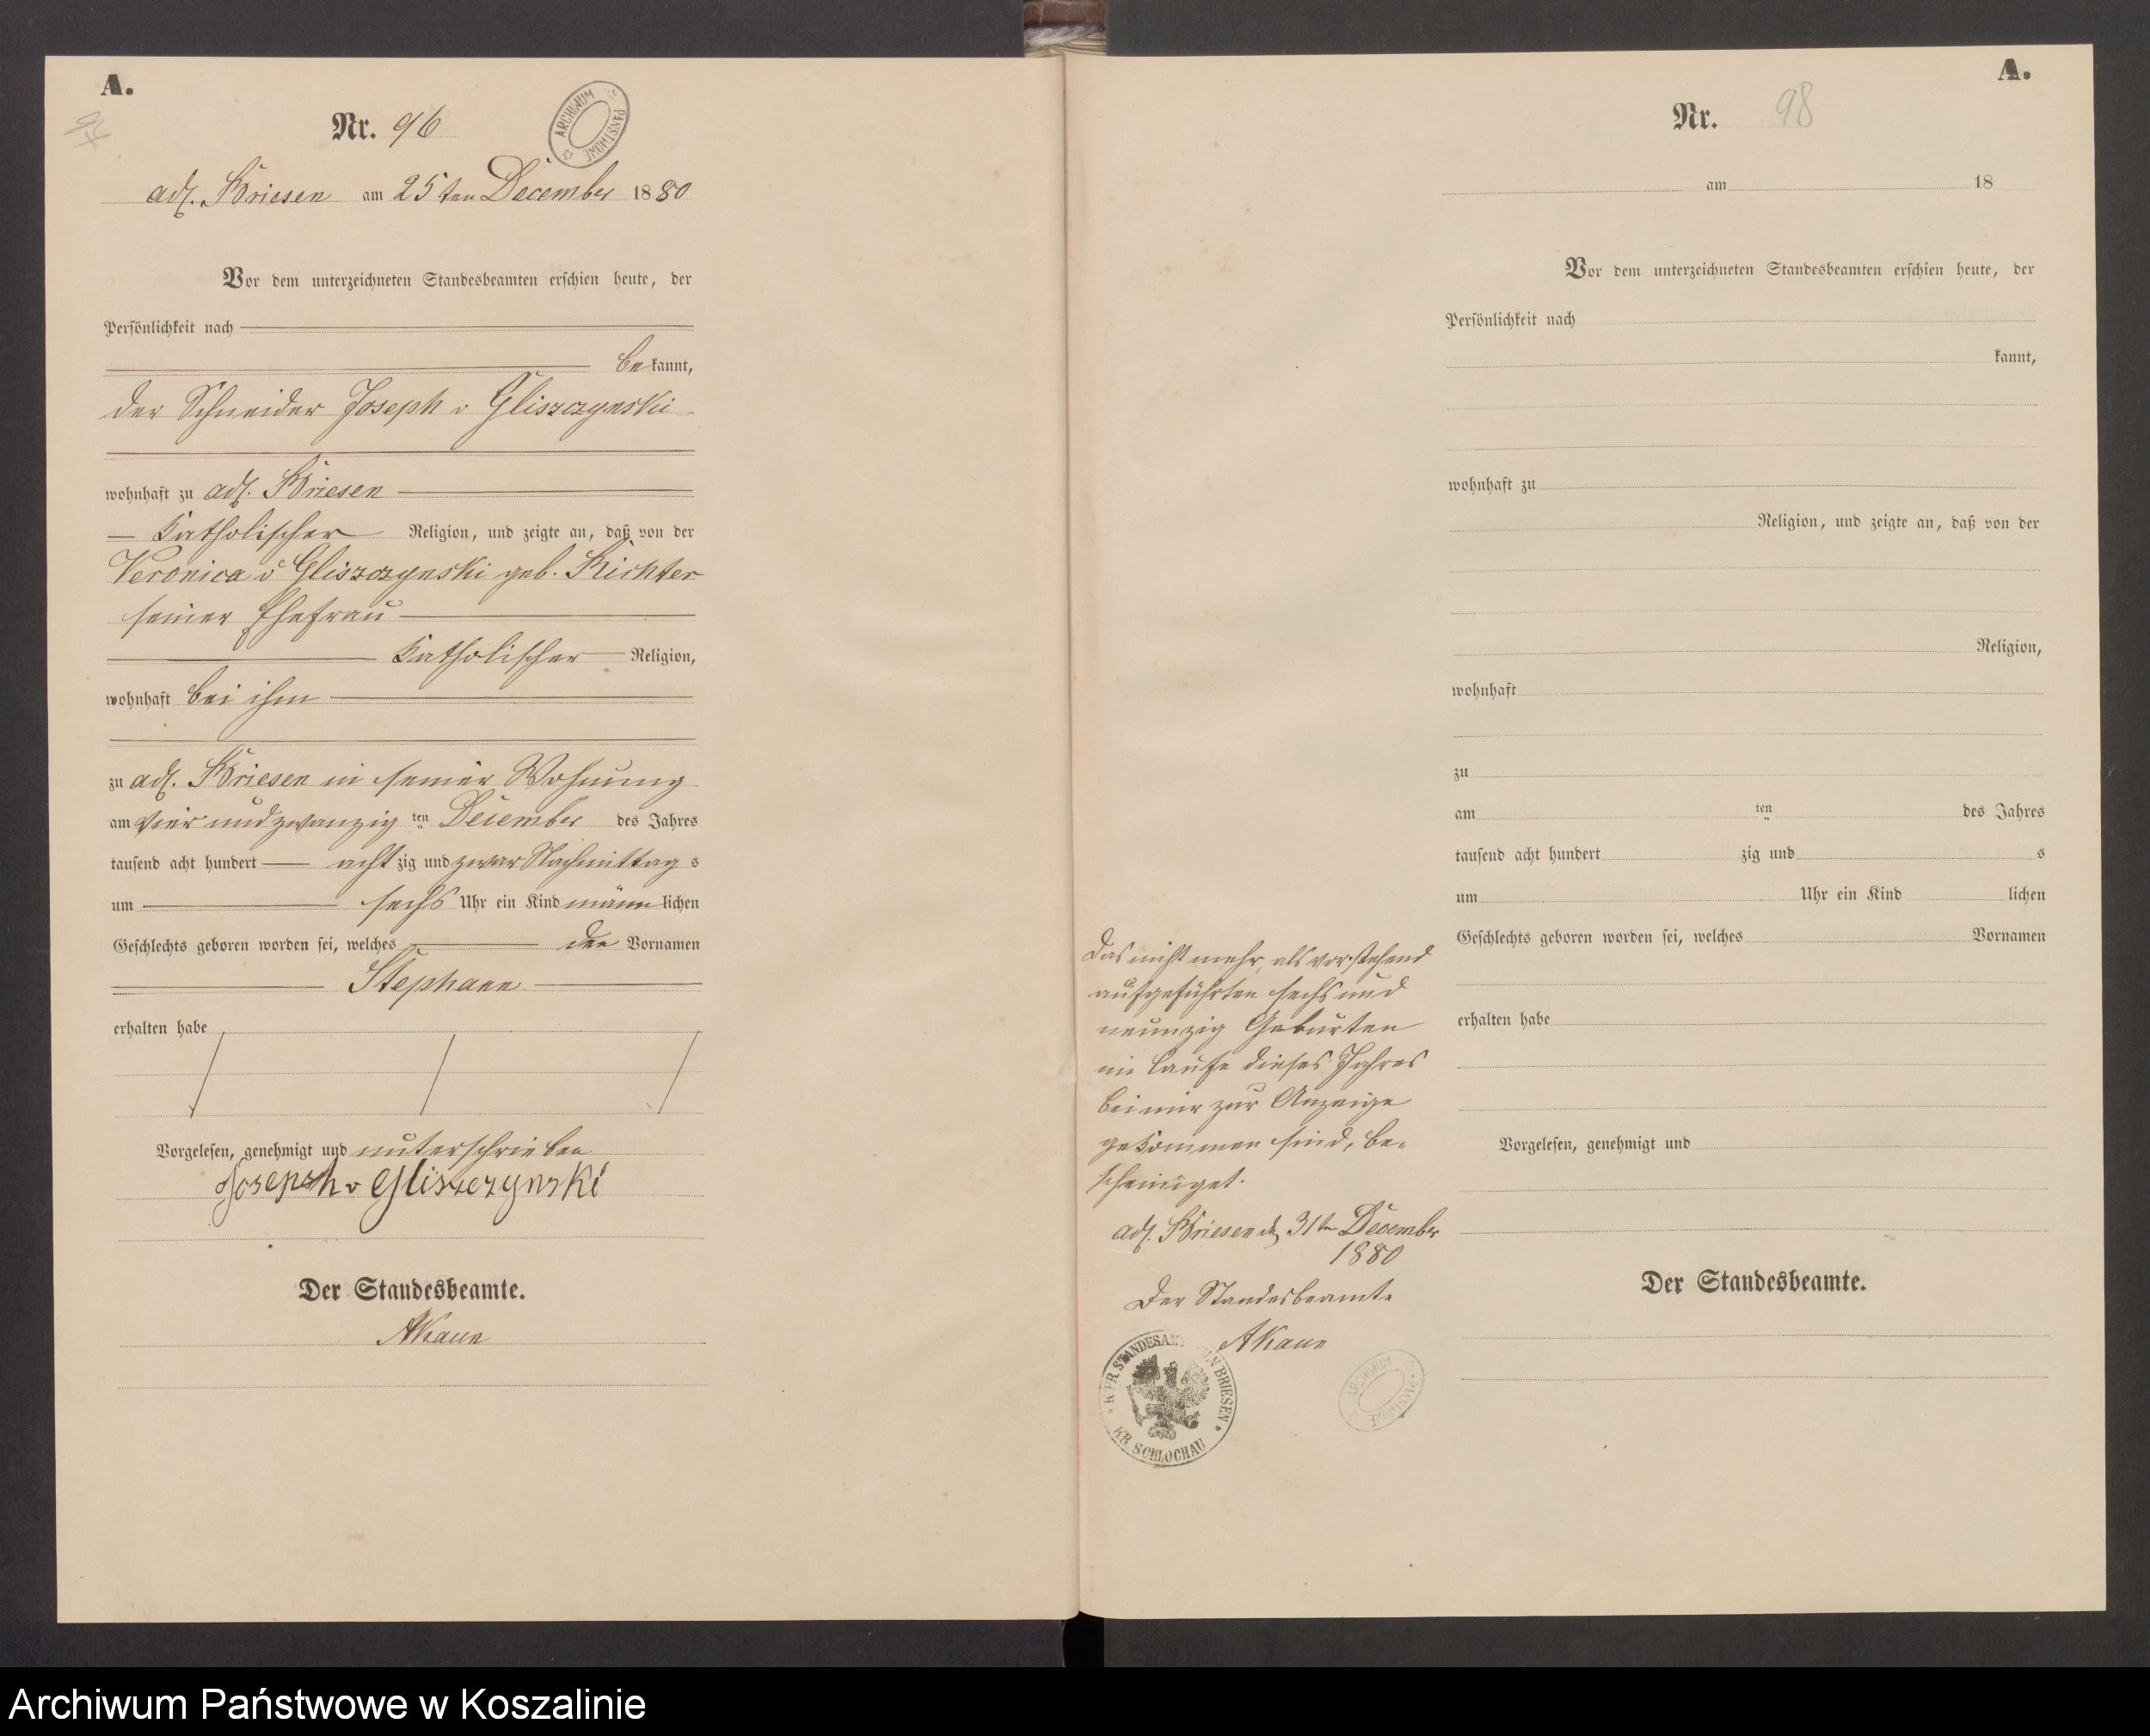 A.
Nr. 96
ARCHIWUM PAŃSTWOWE
adl. Briesen am 25ten December 1880
Vor dem unterzeichneten Standesbeamten erschien heute, der
Persönlichkeit nach
bekannt,
der Schneider Joseph v Gliszczynski
wohnhaft zu adl. Briesen
Katholischer Religion, und zeigte an, daß von der
Veronica v Gliszczynski geb. Richter
seiner Ehefrau
Katholischer Religion,
wohnhaft bei ihm
zu adl. Briesen in seiner Wohnung
am vier und zwanzig ten December des Jahres
tausend acht hundert achtzig und zwar Nachmittags
um sechs Uhr ein Kind männlichen
Geschlechts geboren worden sei, welches den Vornamen
Stephann
erhalten habe
Vorgelesen, genehmigt und unterschrieben
Joseph v Gliszczynski
Der Standesbeamte.
AKaun
A.
Nr. 98
am 18
Vor dem unterzeichneten Standesbeamten erschien heute, der
Persönlichkeit nach
kannt,
wohnhaft zu
Religion, und zeigte an, daß von der
Religion,
wohnhaft
zu
am ten des Jahres
tausend acht hundert zig und s
um Uhr ein Kind lichen
Geschlechts geboren worden sei, welches Vornamen
erhalten habe
Vorgelesen, genehmigt und
Der Standesbeamte.
Das nicht mehr, als vorstehend
aufgeführten sechs und
neunzig Geburten
im Laufe dieses Jahres
bei mir zur Anzeige
gekommen sind, be-
scheiniget.
adl. Briesen d 31ten December
1880
Der Standesbeamte
AKaun
K. PR. STANDESAMT BRIESEN
KR. SCHLOCHAU
ARCHIWUM PAŃSTWOWE
Archiwum Państwowe w Koszalinie